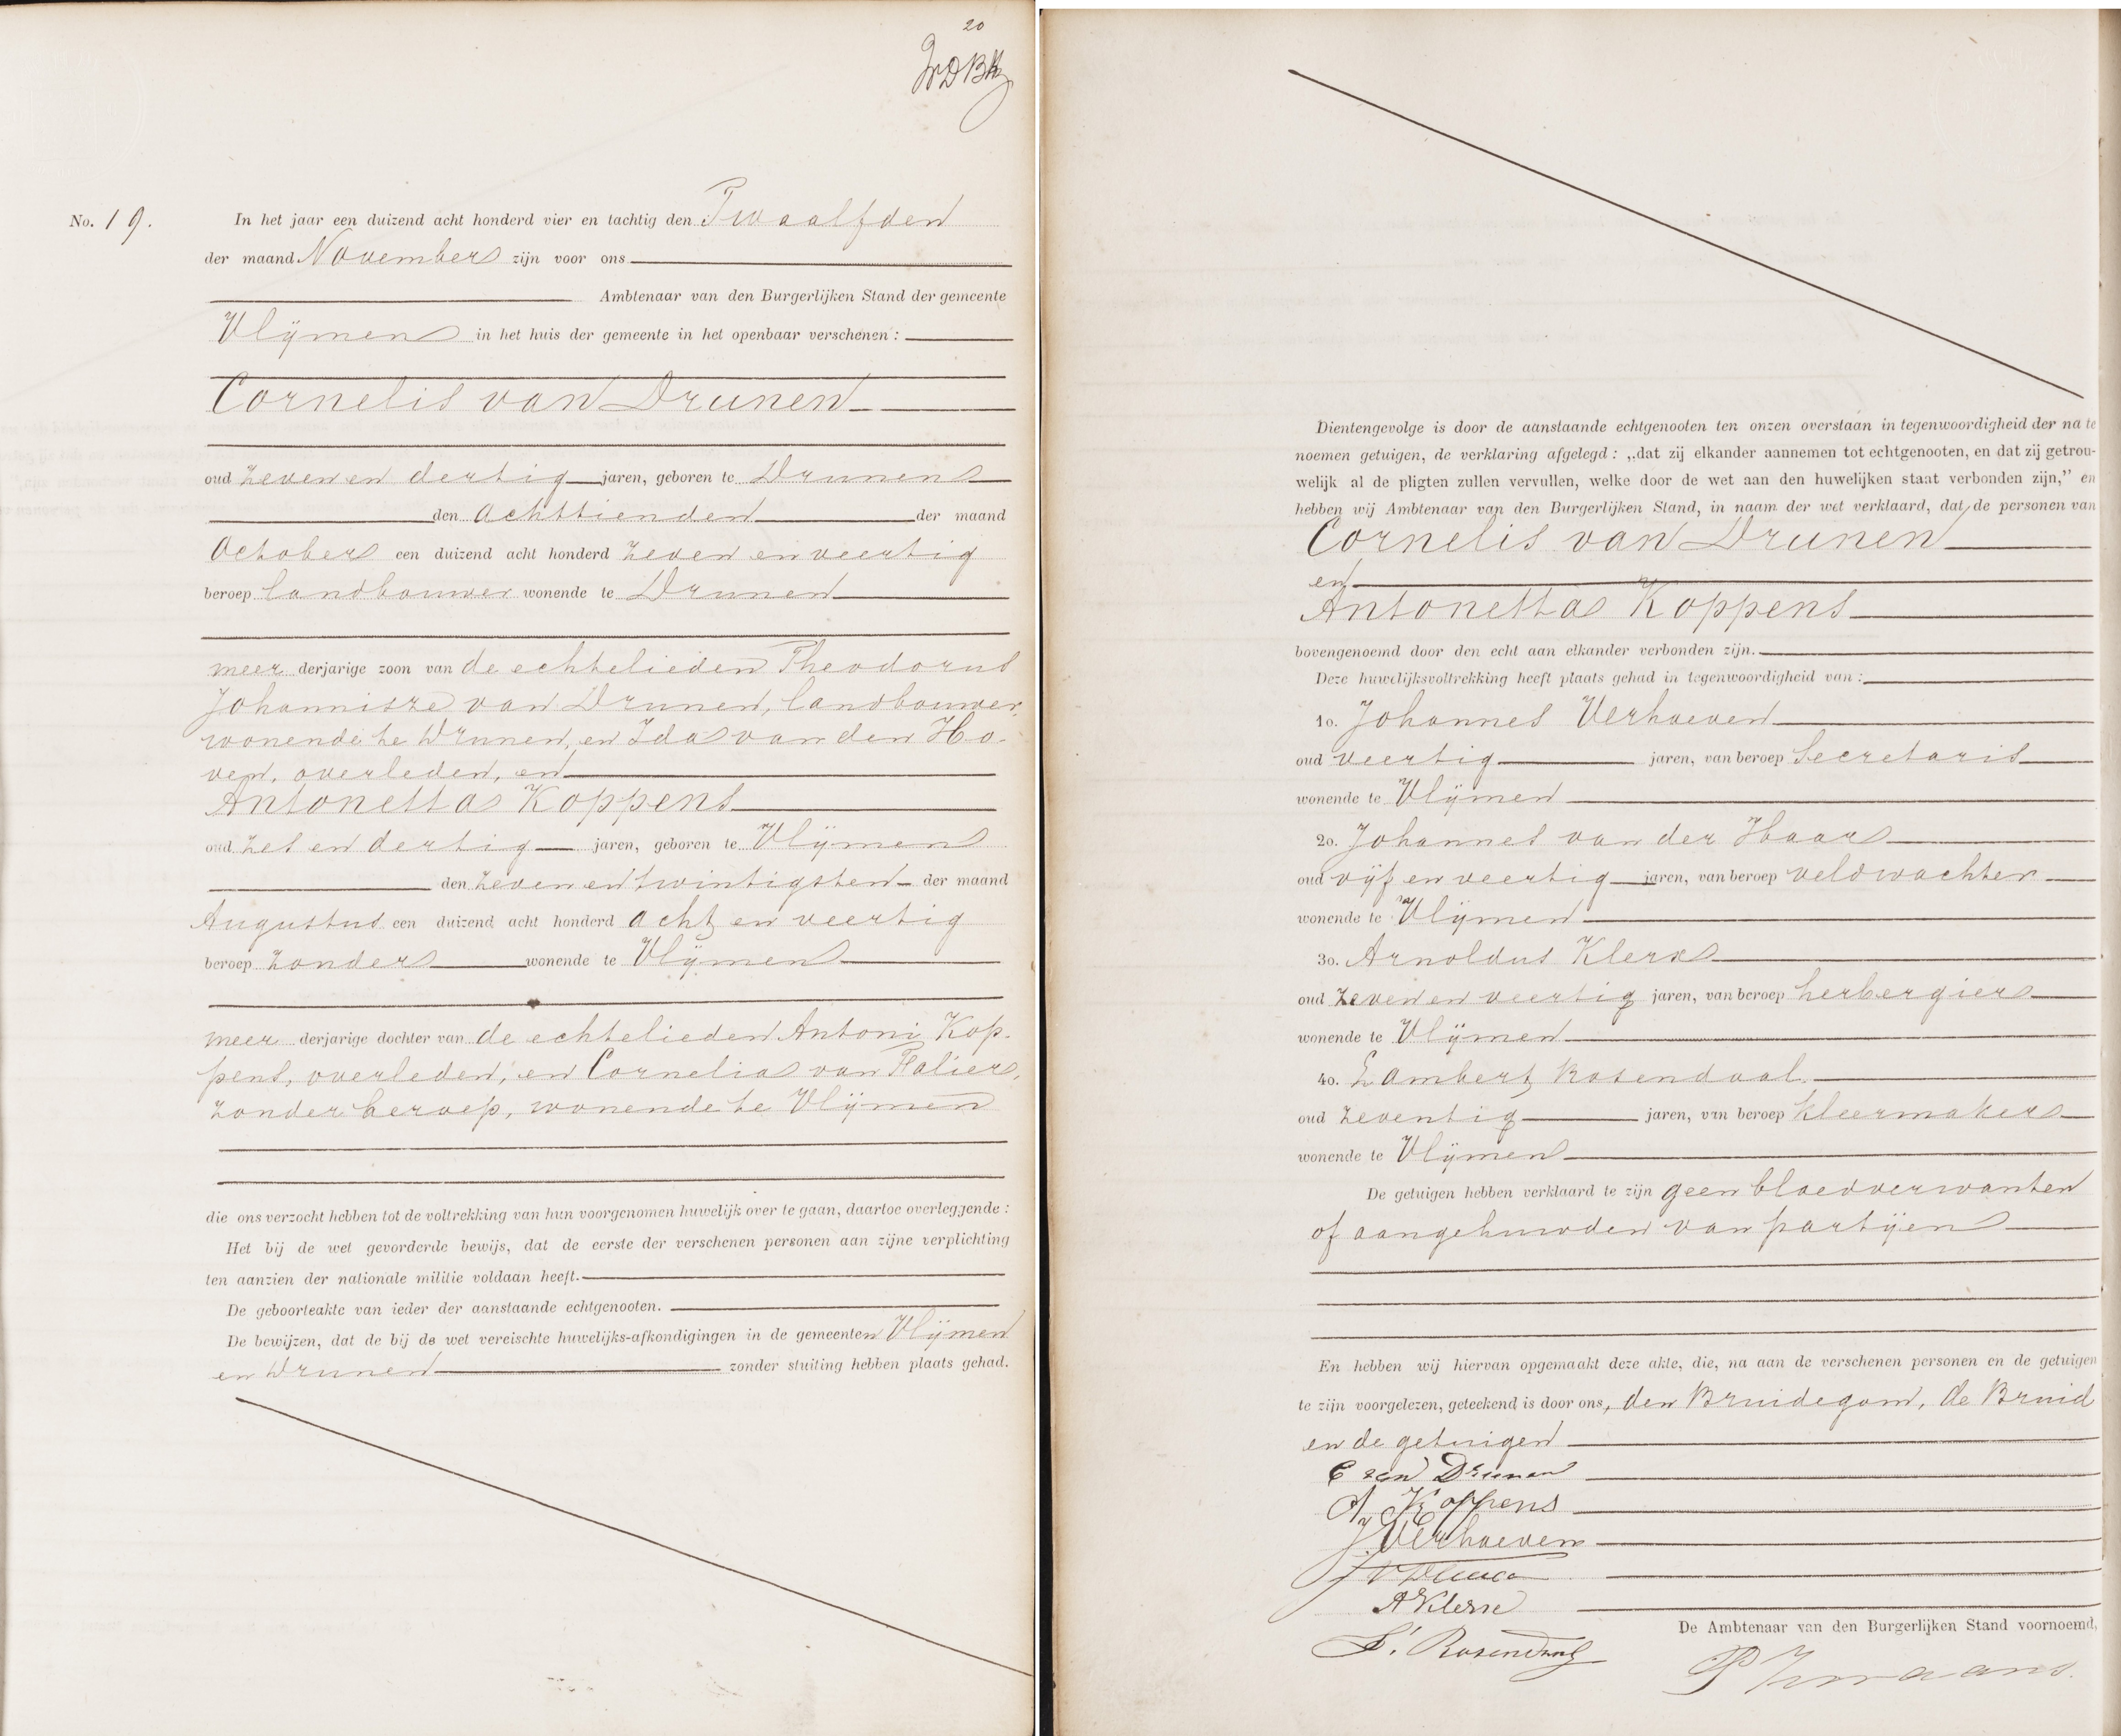 20
No. 19. In het jaar een duizend acht honderd vier en tachtig den Twaalfden
der maand November zijn voor ons
Ambtenaar van den Burgerlijken Stand der gemeente
Vlijmen in het huis der gemeente in het openbaar verschenen:
Cornelis van Drunen
oud zeven en dertig jaren, geboren te Drunen
den achttienden der maand
October een duizend acht honderd zeven en veertig
beroep landbouwer wonende te Drunen
meer derjarige zoon van de echtelieden Theodorus
Johannisze van Drunen, landbouwer,
wonende te Drunen, en Ida van den Ho-
ven, overleden, en
Antonetta Koppens
oud zes en dertig jaren, geboren te Vlijmen
den zeven en twintigsten der maand
Augustus een duizend acht honderd acht en veertig
beroep zonder wonende te Vlijmen
meer derjarige dochter van de echtelieden Antoni Kop-
pens, overleden, en Cornelia van Falier,
zonder beroep, wonende te Vlijmen
die ons verzocht hebben tot de voltrekking van hun voorgenomen huwelijk over te gaan, daartoe overleggende:
Het bij de wet gevorderde bewijs, dat de eerste der verschenen personen aan zijne verplichting
ten aanzien der nationale militie voldaan heeft.
De geboorteakte van ieder der aanstaande echtgenooten.
De bewijzen, dat de bij de wet vereischte huwelijks-afkondigingen in de gemeenten Vlijmen
en Drunen zonder stuiting hebben plaats gehad.
Dientengevolge is door de aanstaande echtgenooten ten onzen overstaan in tegenwoordigheid der na te
noemen getuigen, de verklaring afgelegd: „dat zij elkander aannemen tot echtgenooten, en dat zij getrou-
welijk al de pligten zullen vervullen, welke door de wet aan den huwelijken staat verbonden zijn,” en
hebben wij Ambtenaar van den Burgerlijken Stand, in naam der wet verklaard, dat de personen van
Cornelis van Drunen
en
Antonetta Koppens
bovengenoemd door den echt aan elkander verbonden zijn.
Deze huwelijksvoltrekking heeft plaats gehad in tegenwoordigheid van:
1o. Johannes Verhoeven
oud veertig jaren, van beroep Secretaris
wonende te Vlijmen
2o. Johannes van der Haar
oud vijf en veertig jaren, van beroep veldwachter
wonende te Vlijmen
3o. Arnoldus Klerx
oud zeven en veertig jaren, van beroep herbergier
wonende te Vlijmen
4o. Lambert Rosendaal
oud zeventig jaren, van beroep kleermaker
wonende te Vlijmen
De getuigen hebben verklaard te zijn geen bloedverwanten
of aangehuwden van partijen
En hebben wij hiervan opgemaakt deze akte, die, na aan de verschenen personen en de getuigen
te zijn voorgelezen, geteekend is door ons, den Bruidegom, de Bruid
en de getuigen
C van Drunen
A Koppens
J Verhoeven
A Klerx
L. Rosendaal
De Ambtenaar van den Burgerlijken Stand voornoemd,